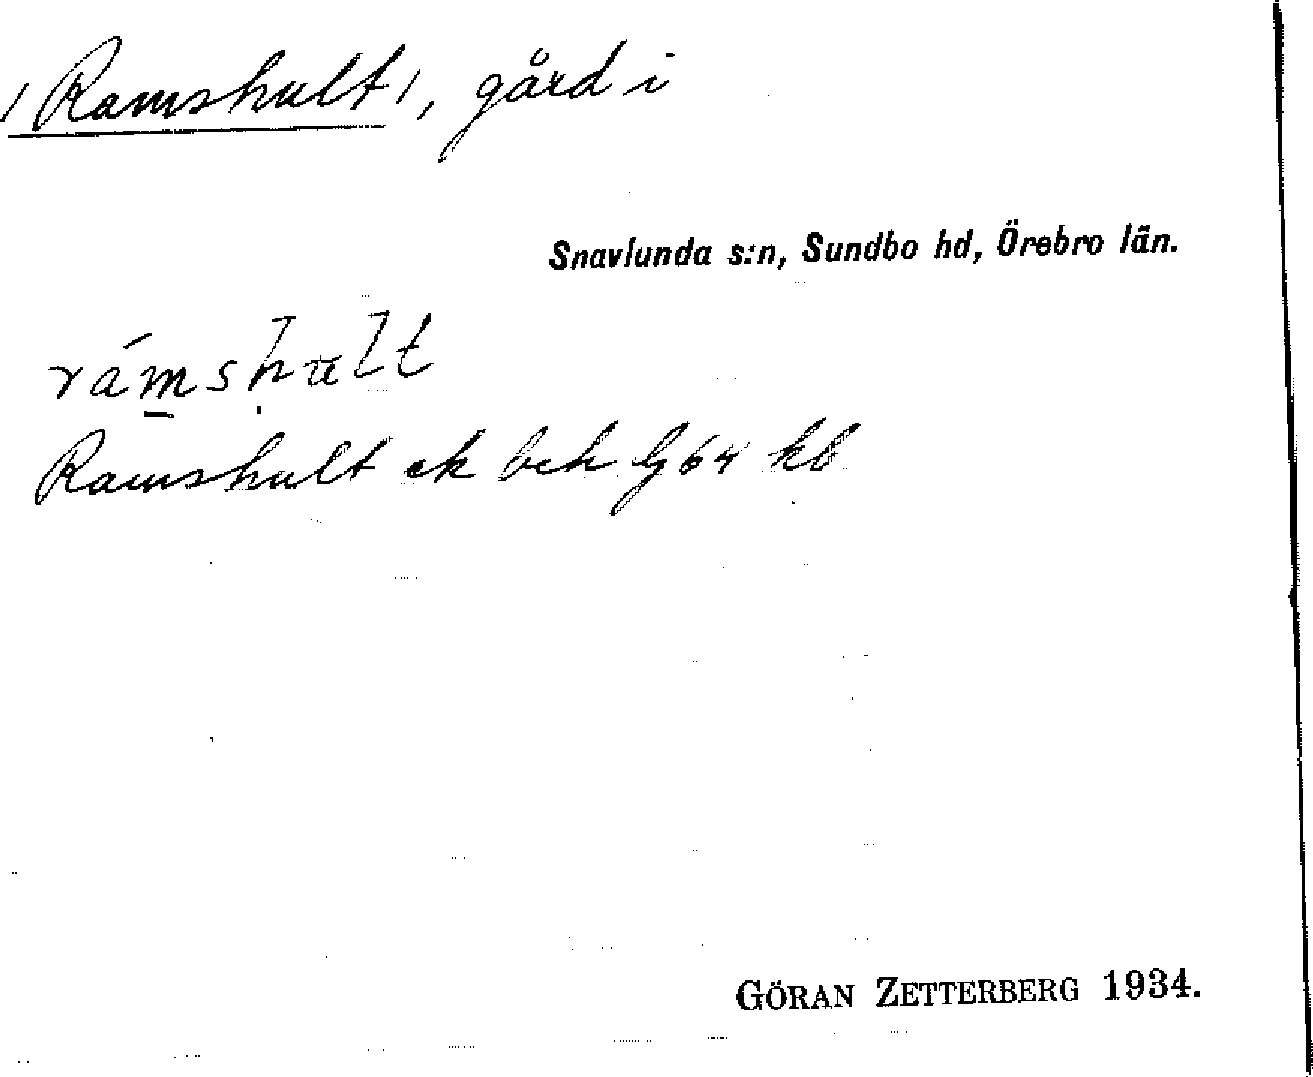 /Ramshult/, gård i
Snavlunda s:n, Sundbo hd, Örebro län.
rámshult
Ramshult ek beh G 64 kb
GÖRAN ZETTERBERG 1934.